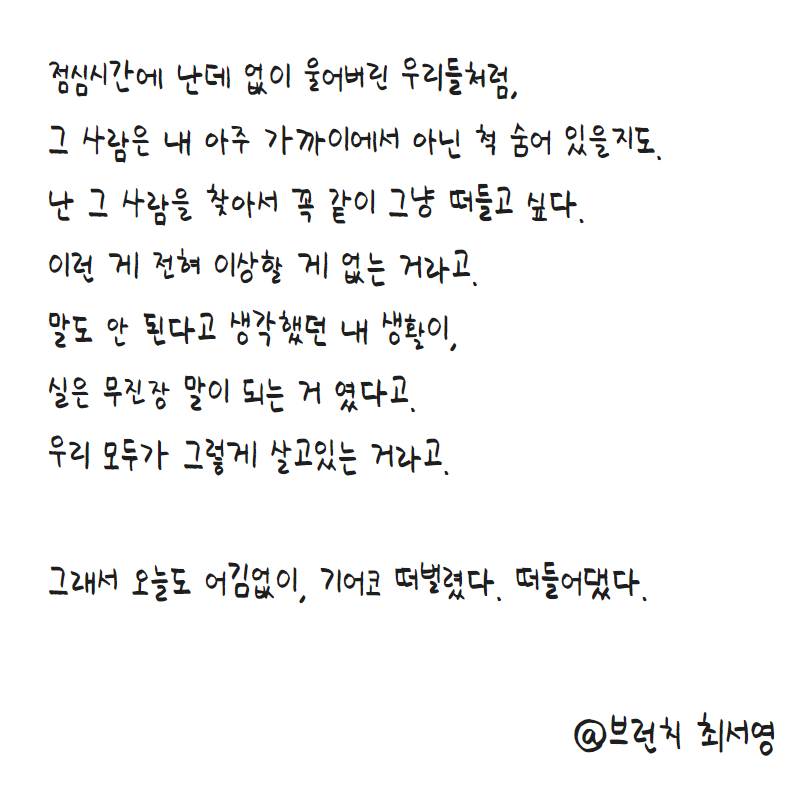 점심시간에 난데 없이 울어버린 우리들처럼,
그 사람은 내 아주 가까이에서 아닌 척 숨어 있을지도.
난 그 사람을 찾아서 꼭 같이 그냥 떠들고 싶다.
이런 게 전혀 이상할 게 없는 거라고.
말도 안 된다고 생각했던 내 생활이,
실은 무진장 말이 되는 거 였다고.
우리 모두가 그렇게 살고있는 거라고.
그래서 오늘도 어김없이, 기어코 떠벌렸다. 떠들어댔다.
@브런치 최서영